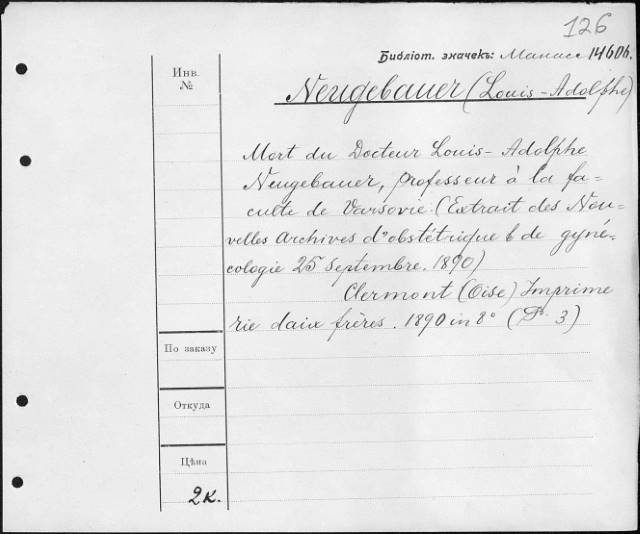 126
Библіот. значекъ: Манасс 14606.
Инв.
№
Neugebauer (Louis-Adolphe)
Mort du Docteur Louis-Adolphe
Neugebauer, professeur à la fa-
culté de Varsovie. (Extrait des Nou-
velles Archives d'obstétrique & de gyné-
cologie 25 Septembre. 1890)
Clermont (Oise) Imprime
rie daix frères. 1890 in 8° (P. 3)
По заказу
Откуда
Цѣна
2к.